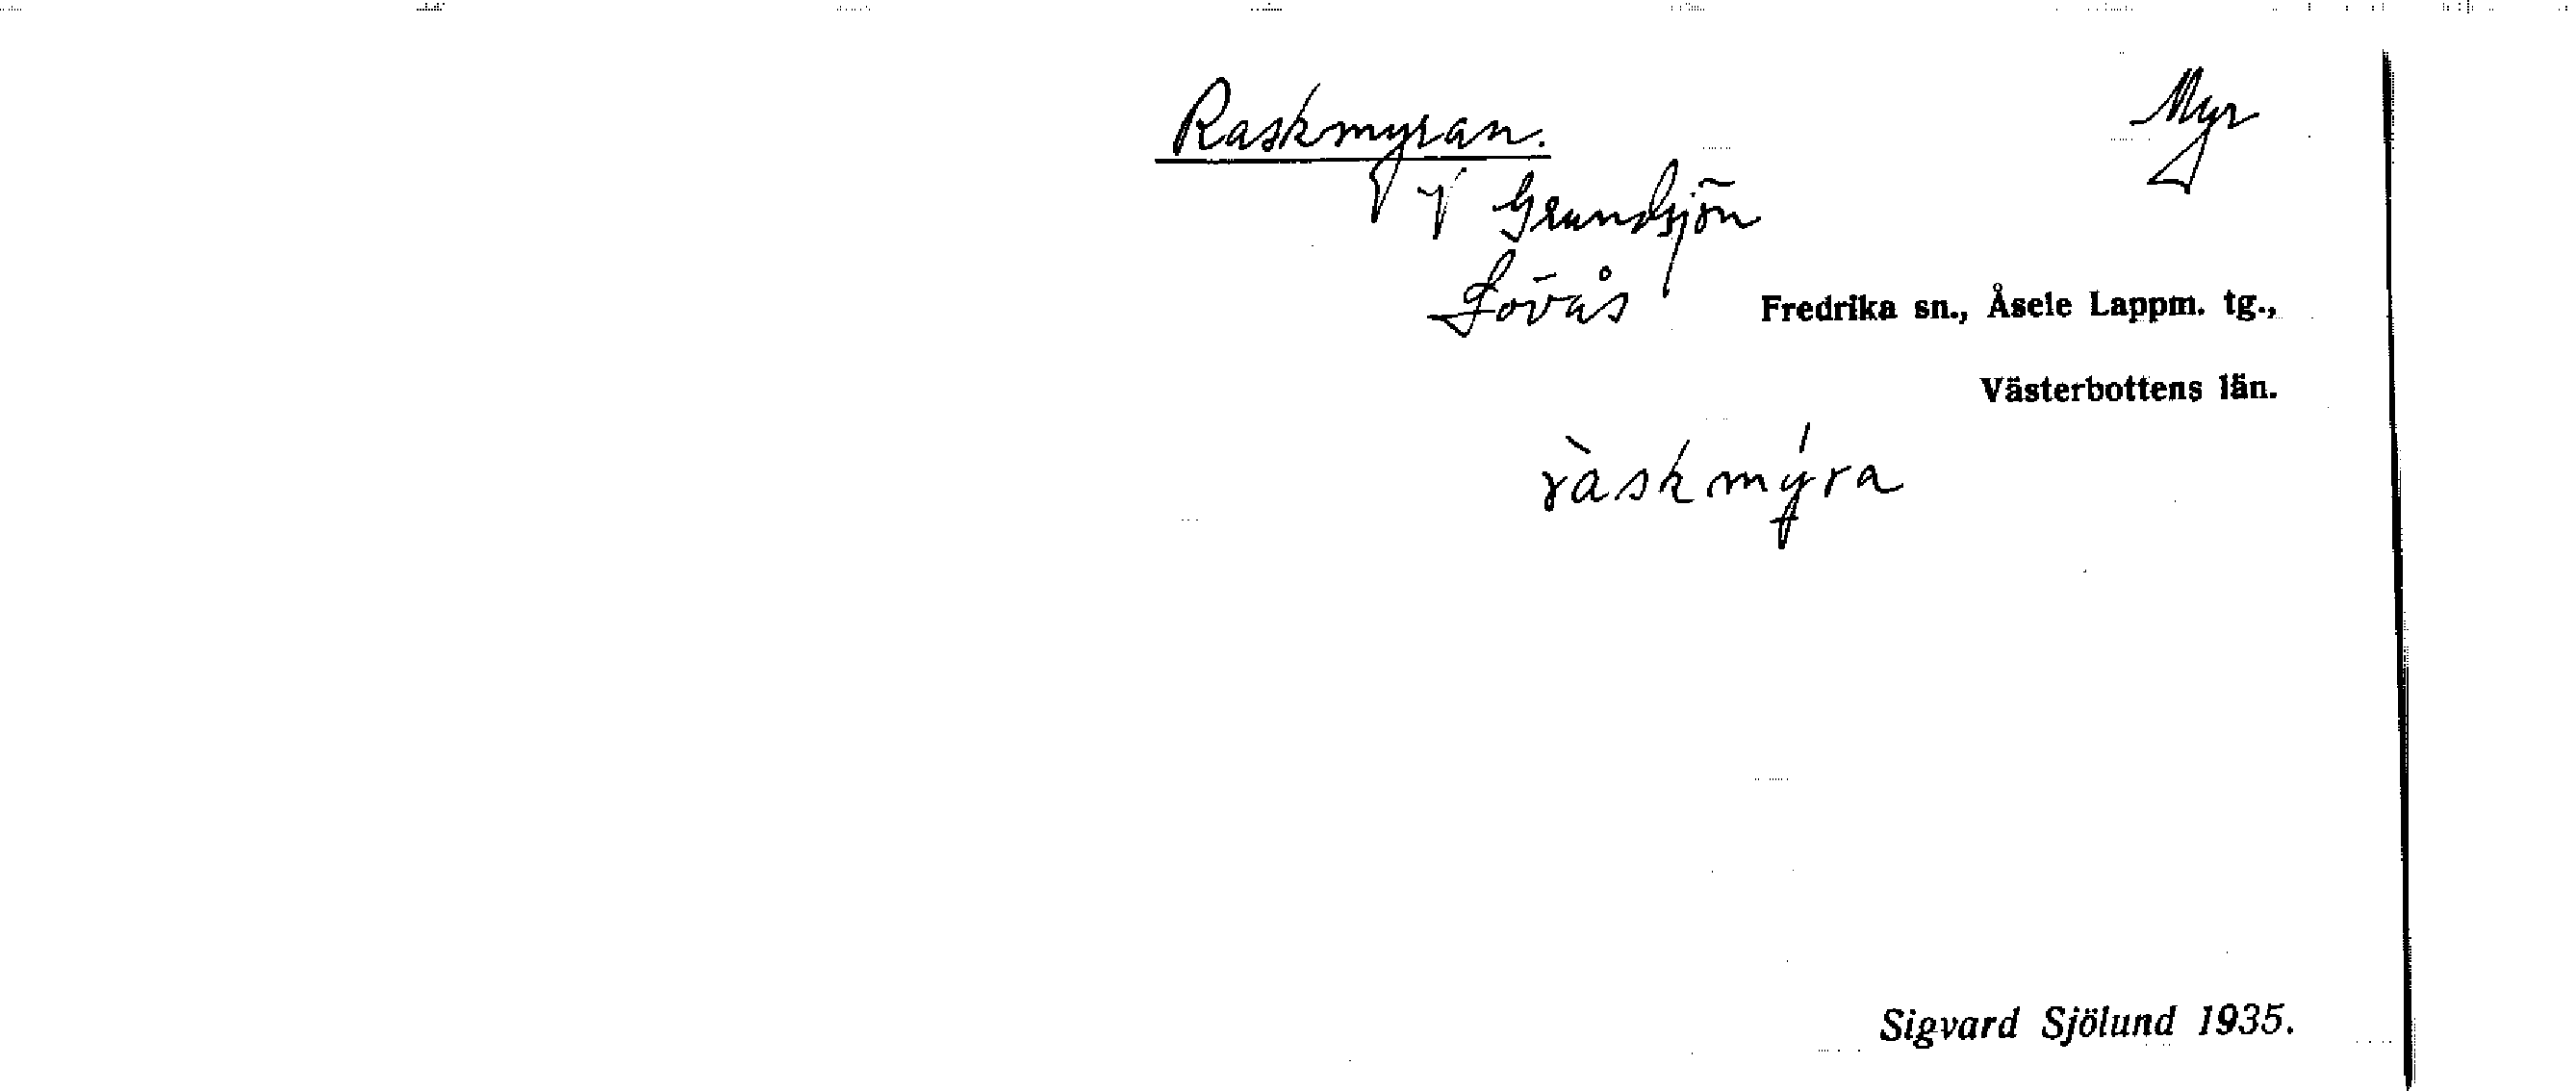 Raskmyran. Myr
V Grundsjön
Lövås Fredrika sn., Åsele Lappm. tg.,
Västerbottens län.
ràskmýra
Sigvard Sjölund 1935.